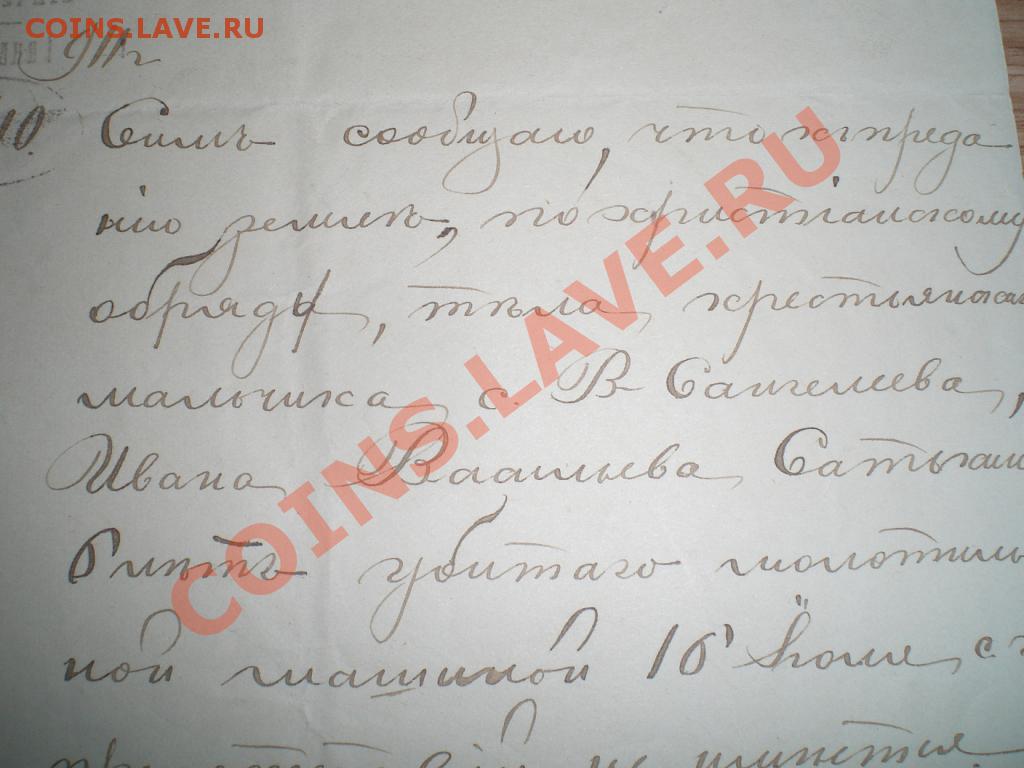 COINS.LAVE.RU
911 г
10.
Симъ сообщаю, что к преда
нію землѣ, по христіанскому
обряду, тѣла крестьянска
мальчика с. В
Ивана Васильева
6 лѣтъ убитаго молотиль
ной машиной 16 Іюля, с
не имѣется
COINS.LAVE.RU